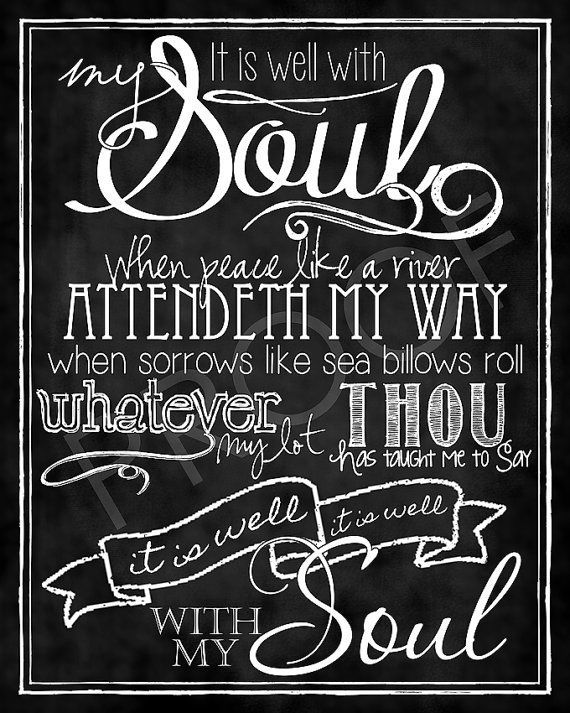 It is well with
my Soul
When peace like a river
ATTENDETH MY WAY
when sorrows like sea billows roll
whatever
my lot
THOU
has taught me to say
it is well
it is well
WITH
MY
Soul
PROOF